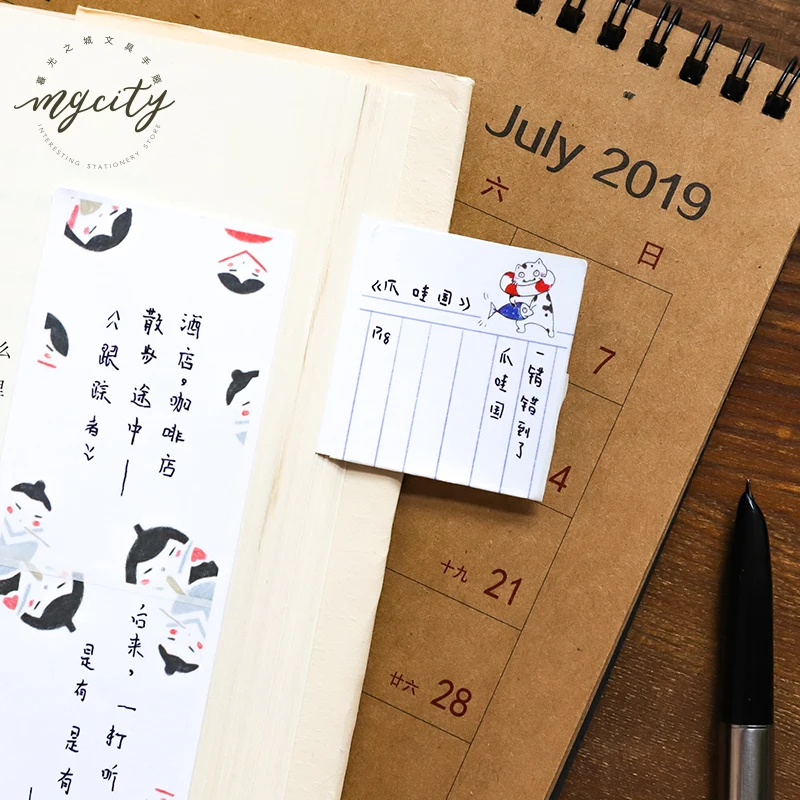 暮光之城文具手園
mycity
INTERESTING STATIONERY STORE
July 2019
六
日
7
4
十九 21
廿六 28
《爪哇国》
一错错到了
爪哇国
P18
酒店,咖啡店
散步途中——
《跟踪者》
后来,一打听
是有是有
么